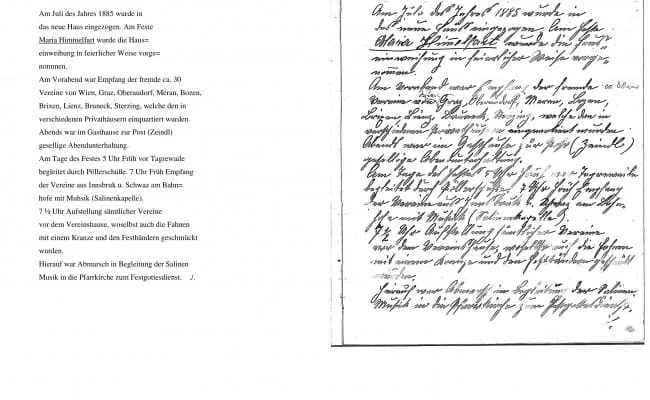 Am Juli des Jahres 1885 wurde in
das neue Haus eingezogen. Am Feste
Maria Himmelfart wurde die Haus=
einweihung in feierlicher Weise vorge=
nommen.
Am Vorabend war Empfang der fremde ca. 30
Vereine von Wien, Graz, Oberaudorf, Meran, Bozen,
Brixen, Lienz, Bruneck, Sterzing, welche den in
verschiedenen Privathäusern einquartiert wurden.
Abends war im Gasthause zur Post (Zeindl)
gesellige Abendunterhaltung.
Am Tage des Festes 5 Uhr Früh vor Tagrewaile
begleitet durch Pöllerschüße. 7 Uhr Früh Empfang
der Vereine aus Innsbruk u. Schwaz am Bahn=
hofe mit Muhsik (Salinenkapelle).
7 ½ Uhr Aufstellung sämtlicher Vereine
vor dem Vereinshause, woselbst auch die Fahnen
mit einem Kranze und den Festbändern geschmückt
wurden.
Hierauf war Abmarsch in Begleitung der Salinen
Musik in die Pfarrkirche zum Festgottesdienst. ./.
Am Juli des Jahres 1885 wurde in
das neue Haus eingezogen. Am Feste
Maria Himmelfart wurde die Haus=
einweihung in feierlicher Weise vorge=
nommen.
Am Vorabend war Empfang der fremde
Vereine von Graz, Oberaudorf, Meran, Bozen,
Brixen, Lienz, Bruneck, Sterzing, welche den in
verschiedenen Privathäusern einquartiert wurden.
Abends war im Gasthause zur Post (Zeindl)
gesellige Abendunterhaltung.
Am Tage des Festes 5 Uhr Früh vor Tagrewaile
begleitet durch Pöllerschüße. 7 Uhr Früh Empfang
der Vereine aus Innsbruk u. Schwaz am Bahn=
hofe mit Muhsik (Salinenkapelle).
7 ½ Uhr Aufstellung sämtlicher Vereine
vor dem Vereinshause, woselbst auch die Fahnen
mit einem Kranze und den Festbändern geschmückt
wurden.
Hierauf war Abmarsch in Begleitung der Salinen
Musik in die Pfarrkirche zum Festgottesdienst.
./.